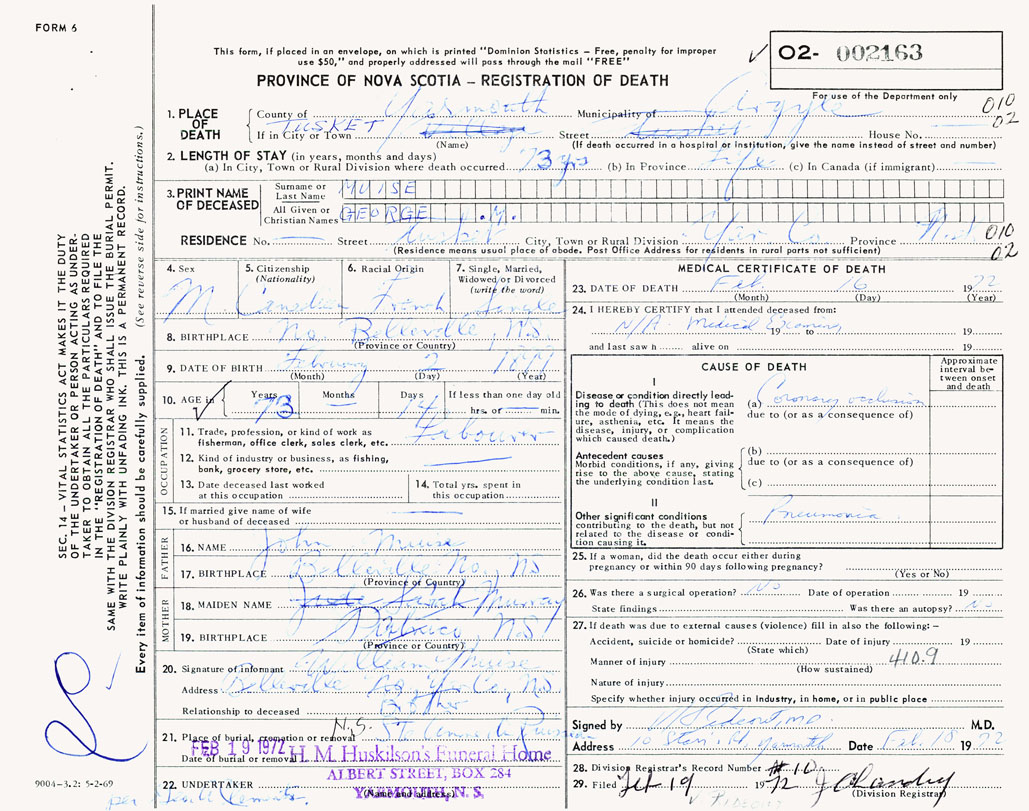 FORM 6
This form, if placed in an envelope, on which is printed "Dominion Statistics – Free, penalty for improper
use $50," and properly addressed will pass through the mail "FREE"
PROVINCE OF NOVA SCOTIA – REGISTRATION OF DEATH
✓ 02- 002163
For use of the Department only
010
02
1. PLACE OF DEATH
County of Yarmouth Municipality of Argyle
If in City or Town TUSKET Street House No.
(Name) (If death occurred in a hospital or institution, give the name instead of street and number)
2. LENGTH OF STAY (in years, months and days)
(a) In City, Town or Rural Division where death occurred 73 yrs (b) In Province Life (c) In Canada (if immigrant)
3. PRINT NAME OF DECEASED
Surname or Last Name MUISE
All Given or Christian Names GEORGE
RESIDENCE No. Street Tusket City, Town or Rural Division Yar Co Province N.S. 010
(Residence means usual place of abode. Post Office Address for residents in rural parts not sufficient) 02
4. Sex M
5. Citizenship (Nationality) Canadian
6. Racial Origin French
7. Single, Married, Widowed or Divorced (write the word) Single
8. BIRTHPLACE No. Belleville, N.S.
(Province or Country)
9. DATE OF BIRTH February 2
(Month) (Day) (Year)
10. AGE in ✓ Years 73 Months Days 14 If less than one day old
hrs. or min.
OCCUPATION
11. Trade, profession, or kind of work as fisherman, office clerk, sales clerk, etc. Labourer
12. Kind of industry or business, as fishing, bank, grocery store, etc.
13. Date deceased last worked at this occupation
14. Total yrs. spent in this occupation
15. If married give name of wife or husband of deceased
FATHER
16. NAME John Muise
17. BIRTHPLACE Belleville No, NS
(Province or Country)
MOTHER
18. MAIDEN NAME Sarah Murray
19. BIRTHPLACE Pubnico, N.S
(Province or Country)
20. Signature of informant William Muise
Address Belleville No, Yar Co, N.S.
Relationship to deceased Brother
N.S.
21. Place of burial, cremation or removal
Date of burial or removal FEB 19 1972
H. M. Huskilson's Funeral Home
ALBERT STREET, BOX 284
22. UNDERTAKER YARMOUTH, N. S.
(Name and address)
per
9004-3.2: 5-2-69
MEDICAL CERTIFICATE OF DEATH
23. DATE OF DEATH Feb. 16 1972
(Month) (Day) (Year)
24. I HEREBY CERTIFY that I attended deceased from:
N/A Medical Examiner 19 to 19
and last saw h alive on 19
CAUSE OF DEATH
Approximate interval between onset and death
I
Disease or condition directly leading to death (This does not mean the mode of dying, e.g., heart failure, asthenia, etc. It means the disease, injury, or complication which caused death.)
(a) Coronary occlusion
due to (or as a consequence of)
Antecedent causes
Morbid conditions, if any, giving rise to the above cause, stating the underlying condition last.
(b)
due to (or as a consequence of)
(c)
II
Other significant conditions contributing to the death, but not related to the disease or condition causing it.
Pneumonia
25. If a woman, did the death occur either during
pregnancy or within 90 days following pregnancy?
(Yes or No)
26. Was there a surgical operation? No Date of operation 19
State findings Was there an autopsy? No
27. If death was due to external causes (violence) fill in also the following: –
Accident, suicide or homicide? Date of injury 19
(State which)
Manner of injury 410.9
(How sustained)
Nature of injury
Specify whether injury occurred in industry, in home, or in public place
Signed by M.D.
Address Yarmouth Date Feb. 18 1972
28. Division Registrar's Record Number #10
29. Filed Feb 19 1972
(Division Registrar)
SEC. 14 – VITAL STATISTICS ACT MAKES IT THE DUTY
OF THE UNDERTAKER OR PERSON ACTING AS UNDER-
TAKER TO OBTAIN ALL THE PARTICULARS REQUIRED
IN THE "REGISTRATION OF DEATH" AND TO FILE THE
SAME WITH THE DIVISION REGISTRAR WHO SHALL ISSUE THE BURIAL PERMIT.
WRITE PLAINLY WITH UNFADING INK. THIS IS A PERMANENT RECORD.
Every item of information should be carefully supplied. (See reverse side for instructions.)